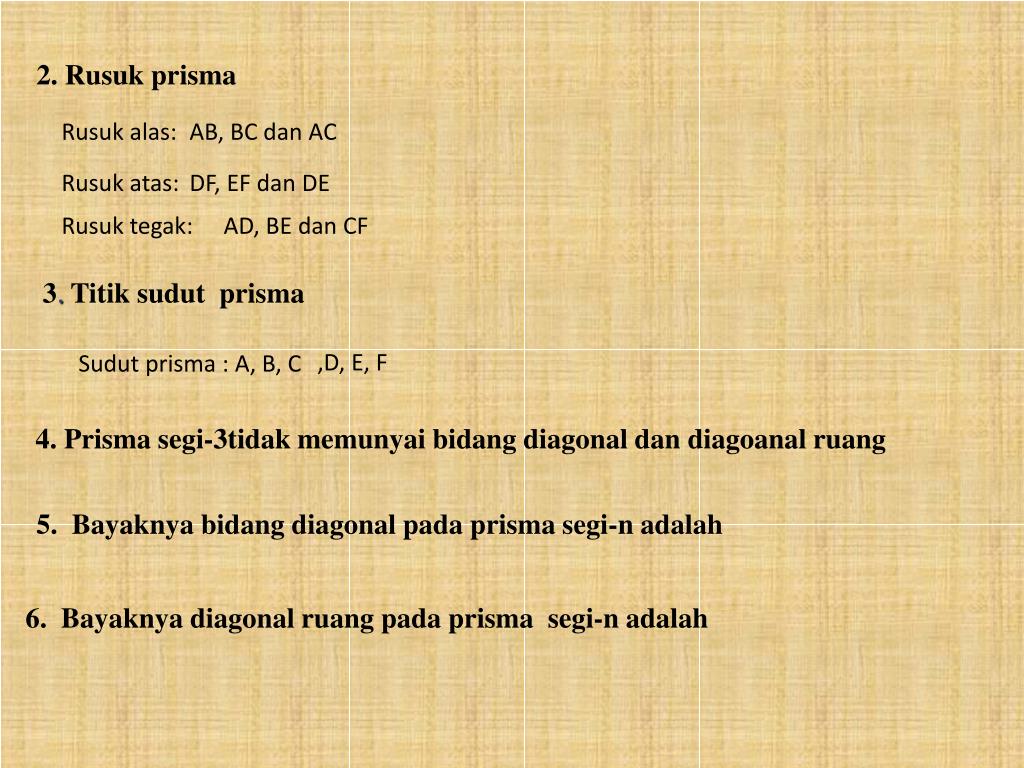 2. Rusuk prisma
Rusuk alas: AB, BC dan AC
Rusuk atas: DF, EF dan DE
Rusuk tegak: AD, BE dan CF
3. Titik sudut prisma
Sudut prisma : A, B, C ,D, E, F
4. Prisma segi-3tidak memunyai bidang diagonal dan diagoanal ruang
5. Bayaknya bidang diagonal pada prisma segi-n adalah
6. Bayaknya diagonal ruang pada prisma segi-n adalah